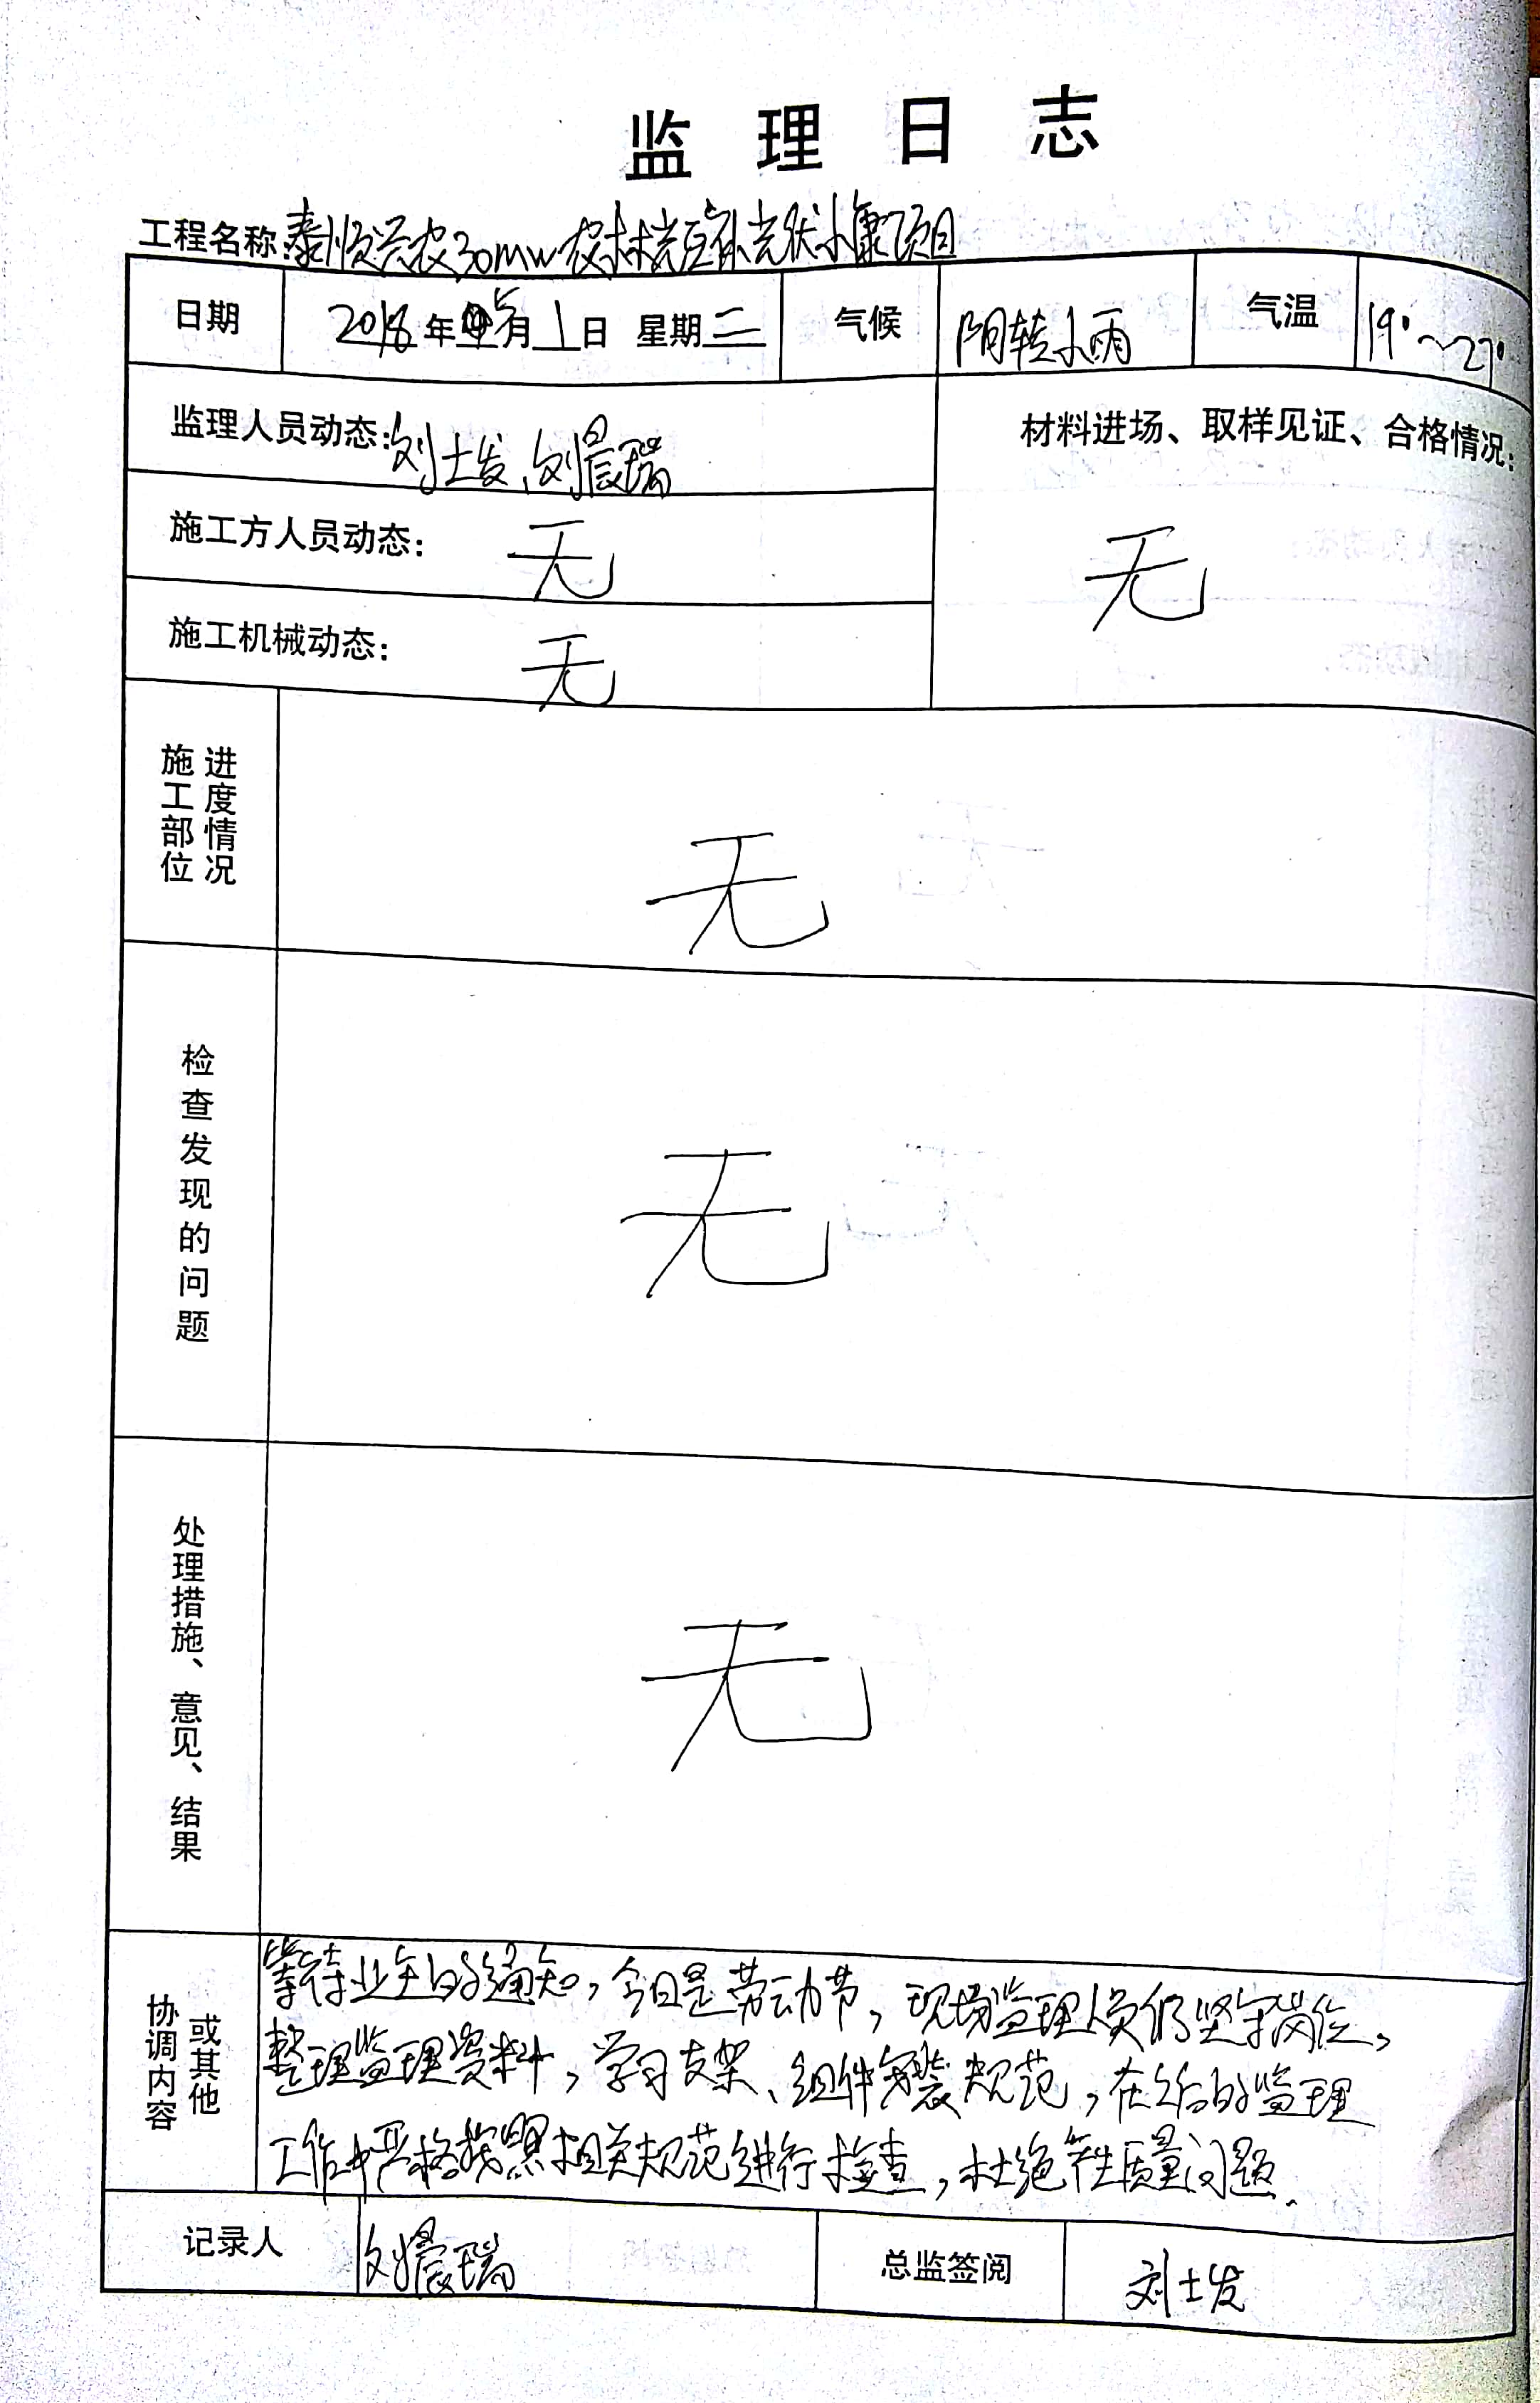 监理日志
工程名称:泰顺兴农30mw农林光互补光伏小康项目
日期 2018年5月1日 星期二 气候 阴转小雨 气温 19°~27°
监理人员动态:刘士发、刘晨瑞
材料进场、取样见证、合格情况:
无
施工方人员动态: 无
施工机械动态: 无
施工部位
进度情况
无
检查发现的问题
无
处理措施、意见、结果
无
协调内容
或其他
等待业主的通知,今日是劳动节,现场监理人员仍坚守岗位,
整理监理资料,学习支架、组件安装规范,在今后的监理
工作中严格按照相关规范进行检查,杜绝产生质量问题.
记录人 刘晨瑞 总监签阅 刘士发